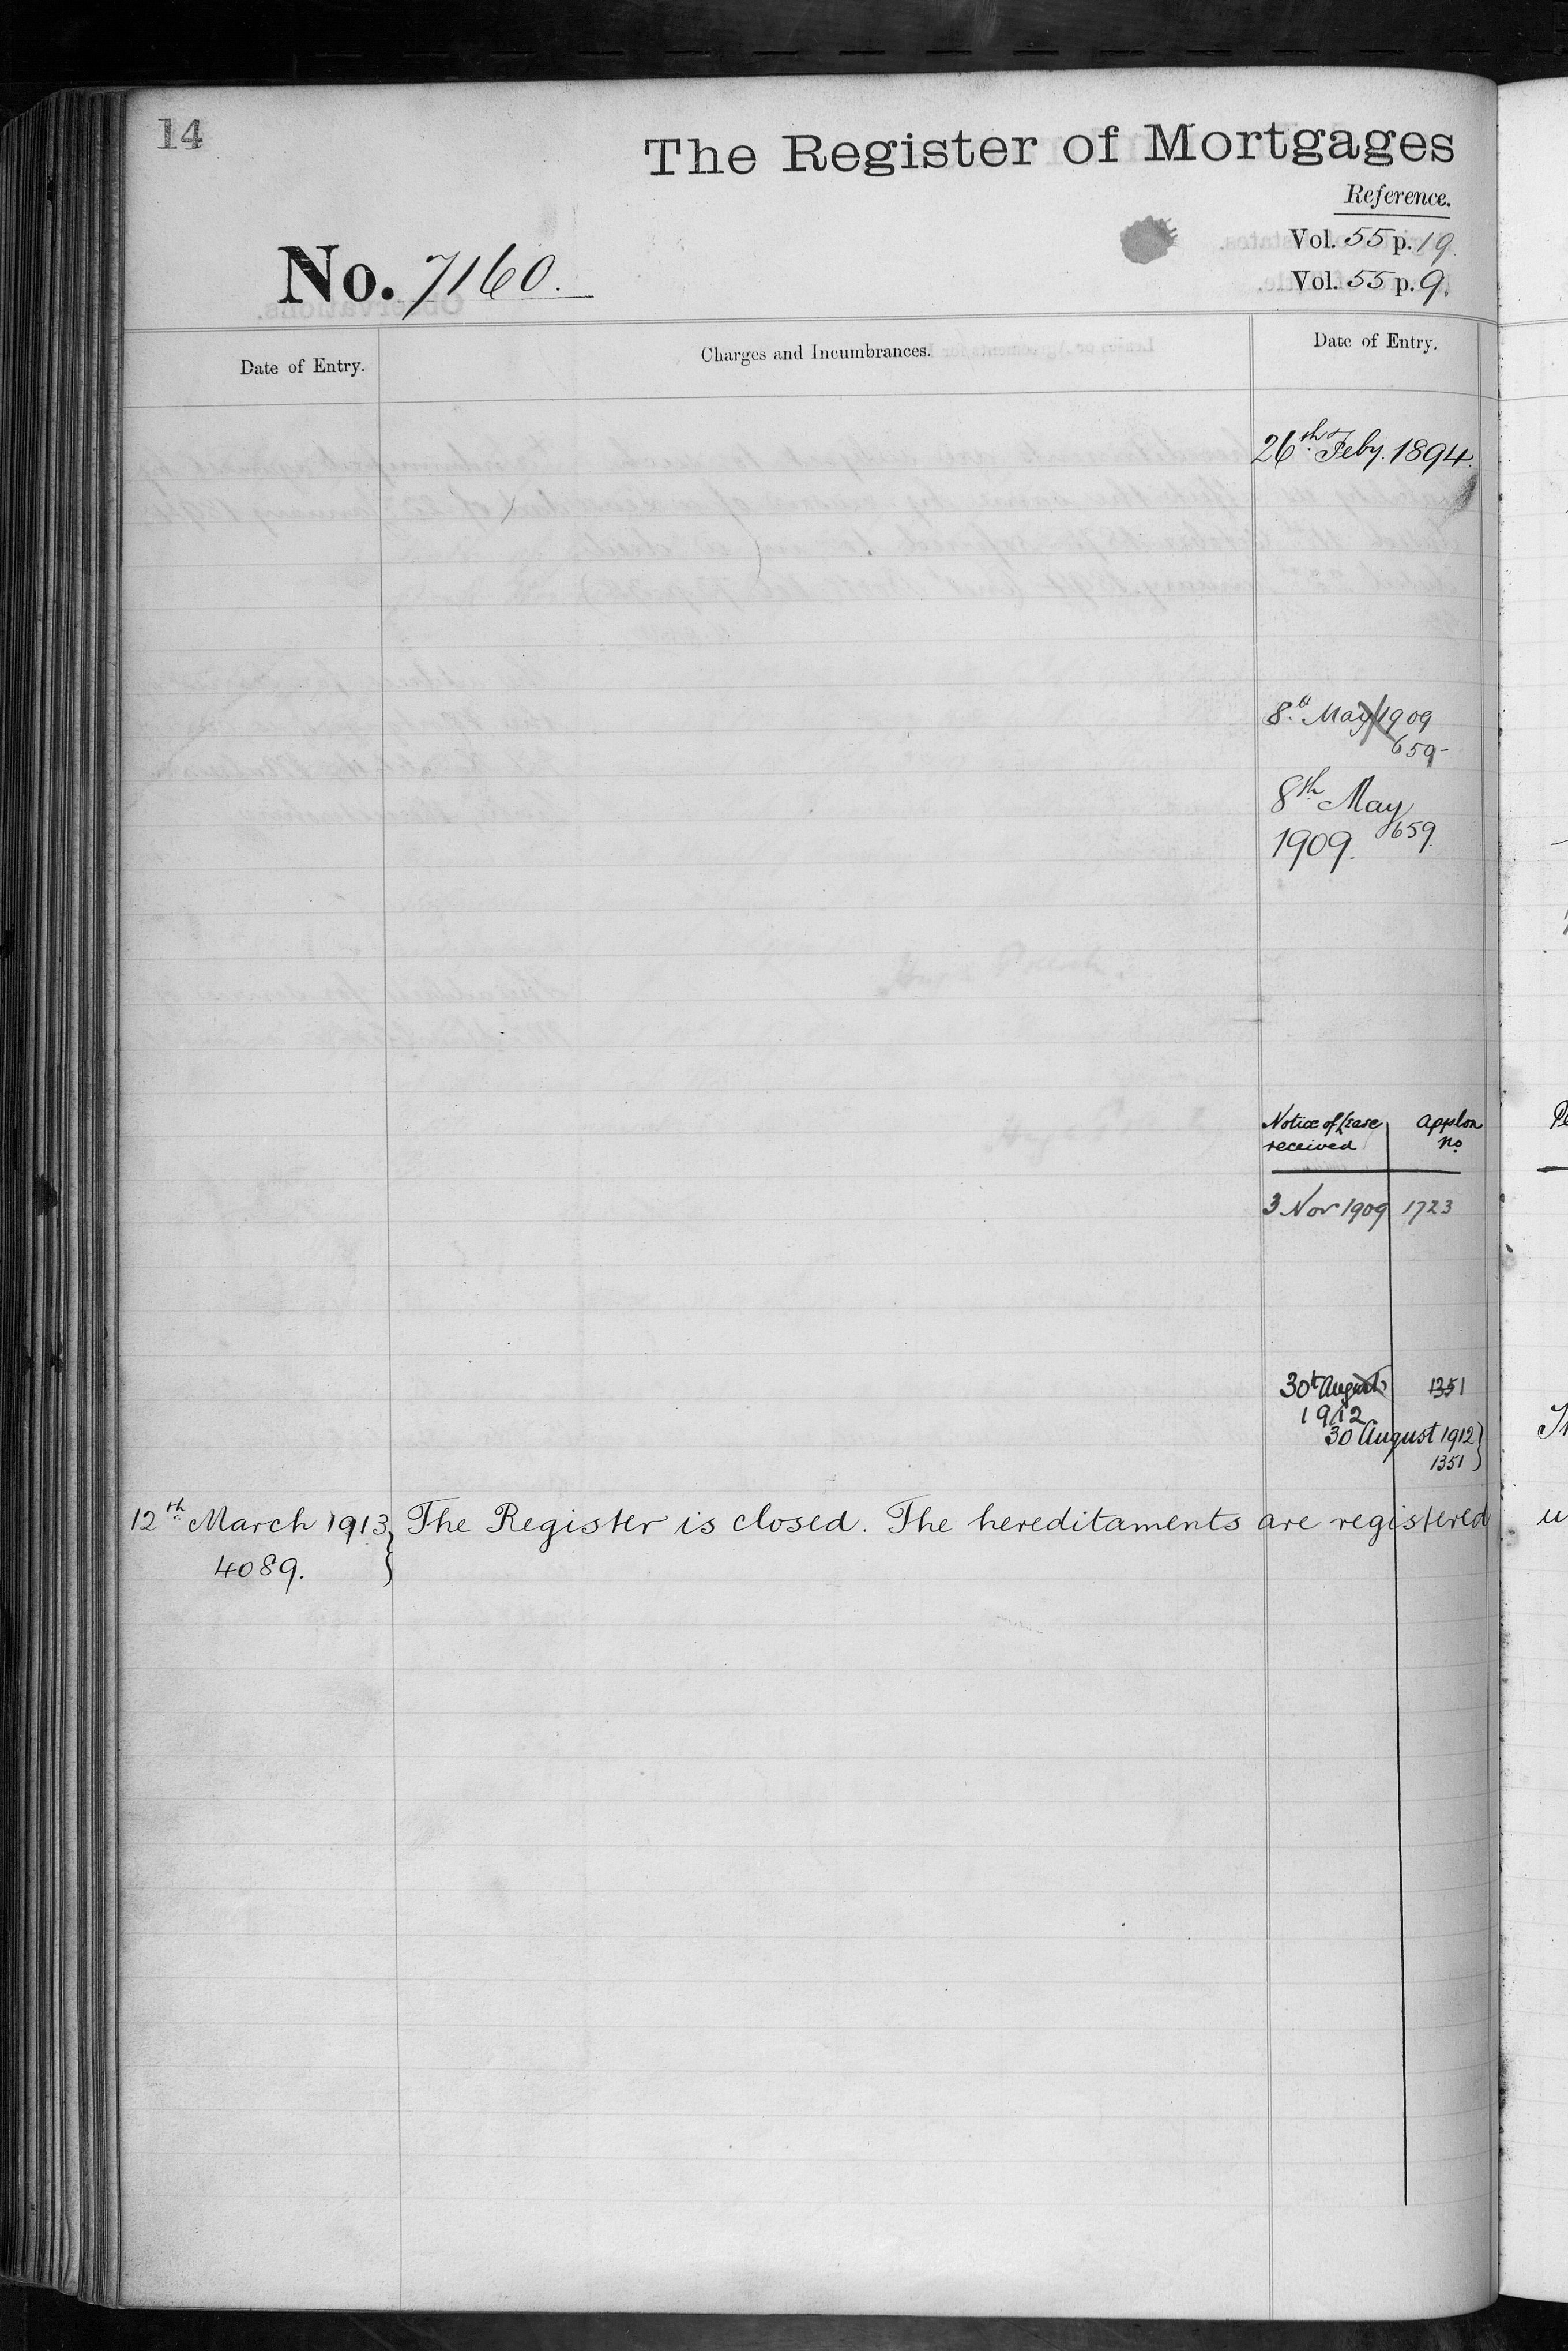 14
The Register of Mortgages
Reference.
Vol. 55 p. 19.
No. 7160.
Vol. 55 p. 9.
Date of Entry.
Charges and Incumbrances.
Date of Entry.
26th Feby. 1894.
8th May 1909
659
8th May
1909. 659.
Notice of Lease Applon
received No
3 Nov 1909 1723
30th August 1351
1912
30 August 1912
1351
12th March 1913 The Register is closed. The hereditaments are registered
4089.